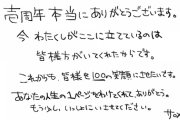 壱周年本当にありがとうございます。
今わたくしがここに立てているのは
皆様方がいてくれたからです。
これからも、皆様を100の笑顔にさせたいです。
あなたの人生の1ページをわけてくれて、ありがとう。
もう少し、いっしょにいさせてください。